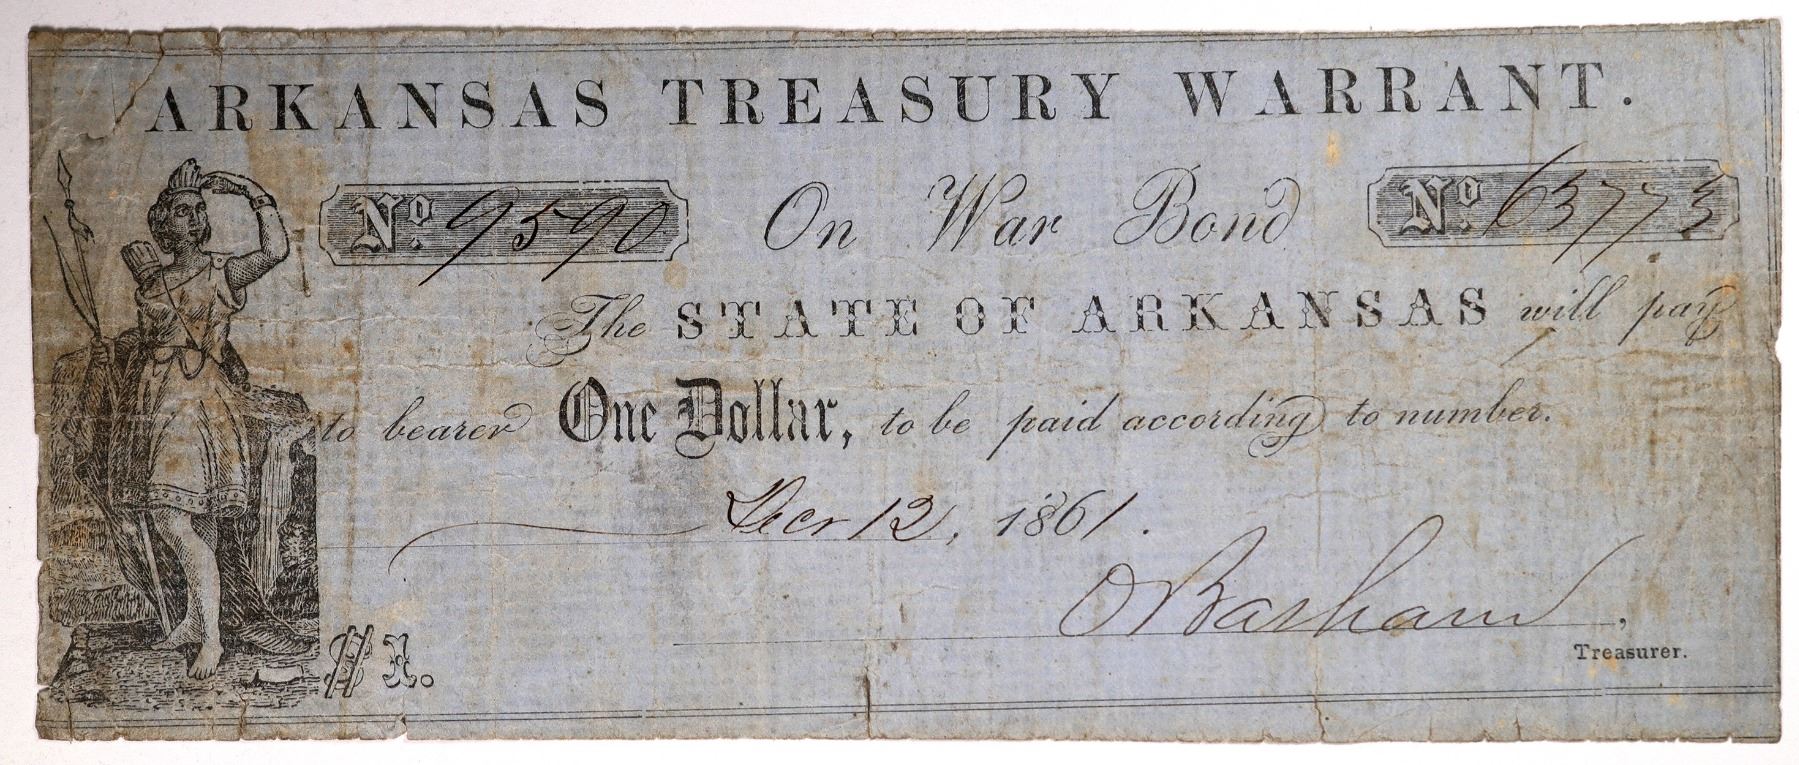 ARKANSAS TREASURY WARRANT.
No. 9590 On War Bond No. 63773
The STATE OF ARKANSAS will pay
to bearer One Dollar, to be paid according to number.
Decr 12, 1861.
O Basham,
Treasurer.
$1.